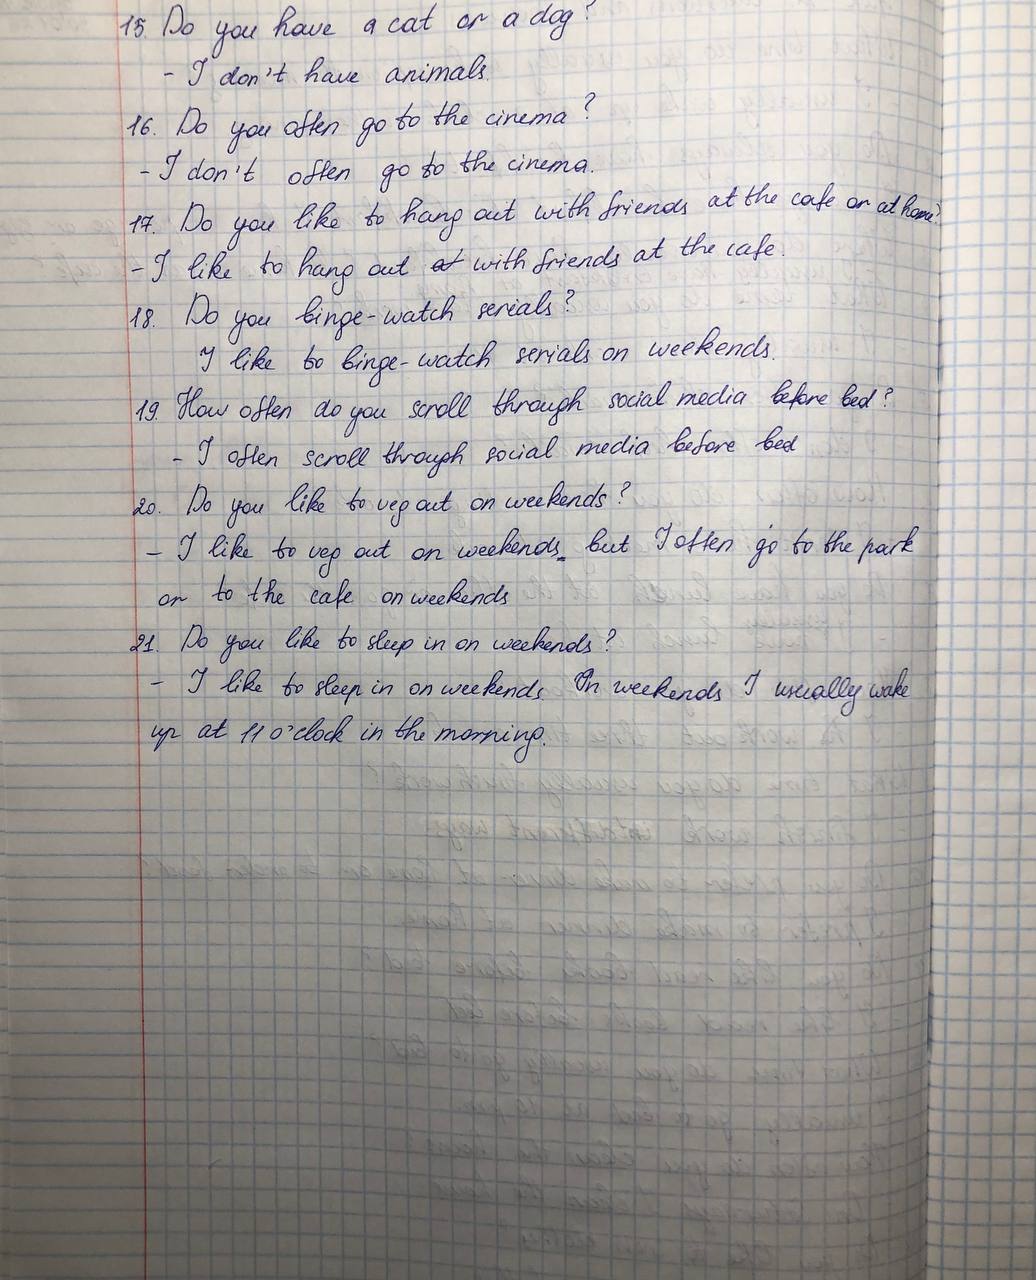 15. Do you have a cat or a dog?
- I don't have animals.
16. Do you often go to the cinema?
- I don't often go to the cinema.
17. Do you like to hang out with friends at the cafe or at home?
- I like to hang out with friends at the cafe.
18. Do you binge-watch serials?
I like to binge-watch serials on weekends.
19. How often do you scroll through social media before bed?
- I often scroll through social media before bed
20. Do you like to veg out on weekends?
- I like to veg out on weekends, but I often go to the park
or to the cafe on weekends
21. Do you like to sleep in on weekends?
- I like to sleep in on weekends. On weekends I usually wake
up at 11 o'clock in the morning.